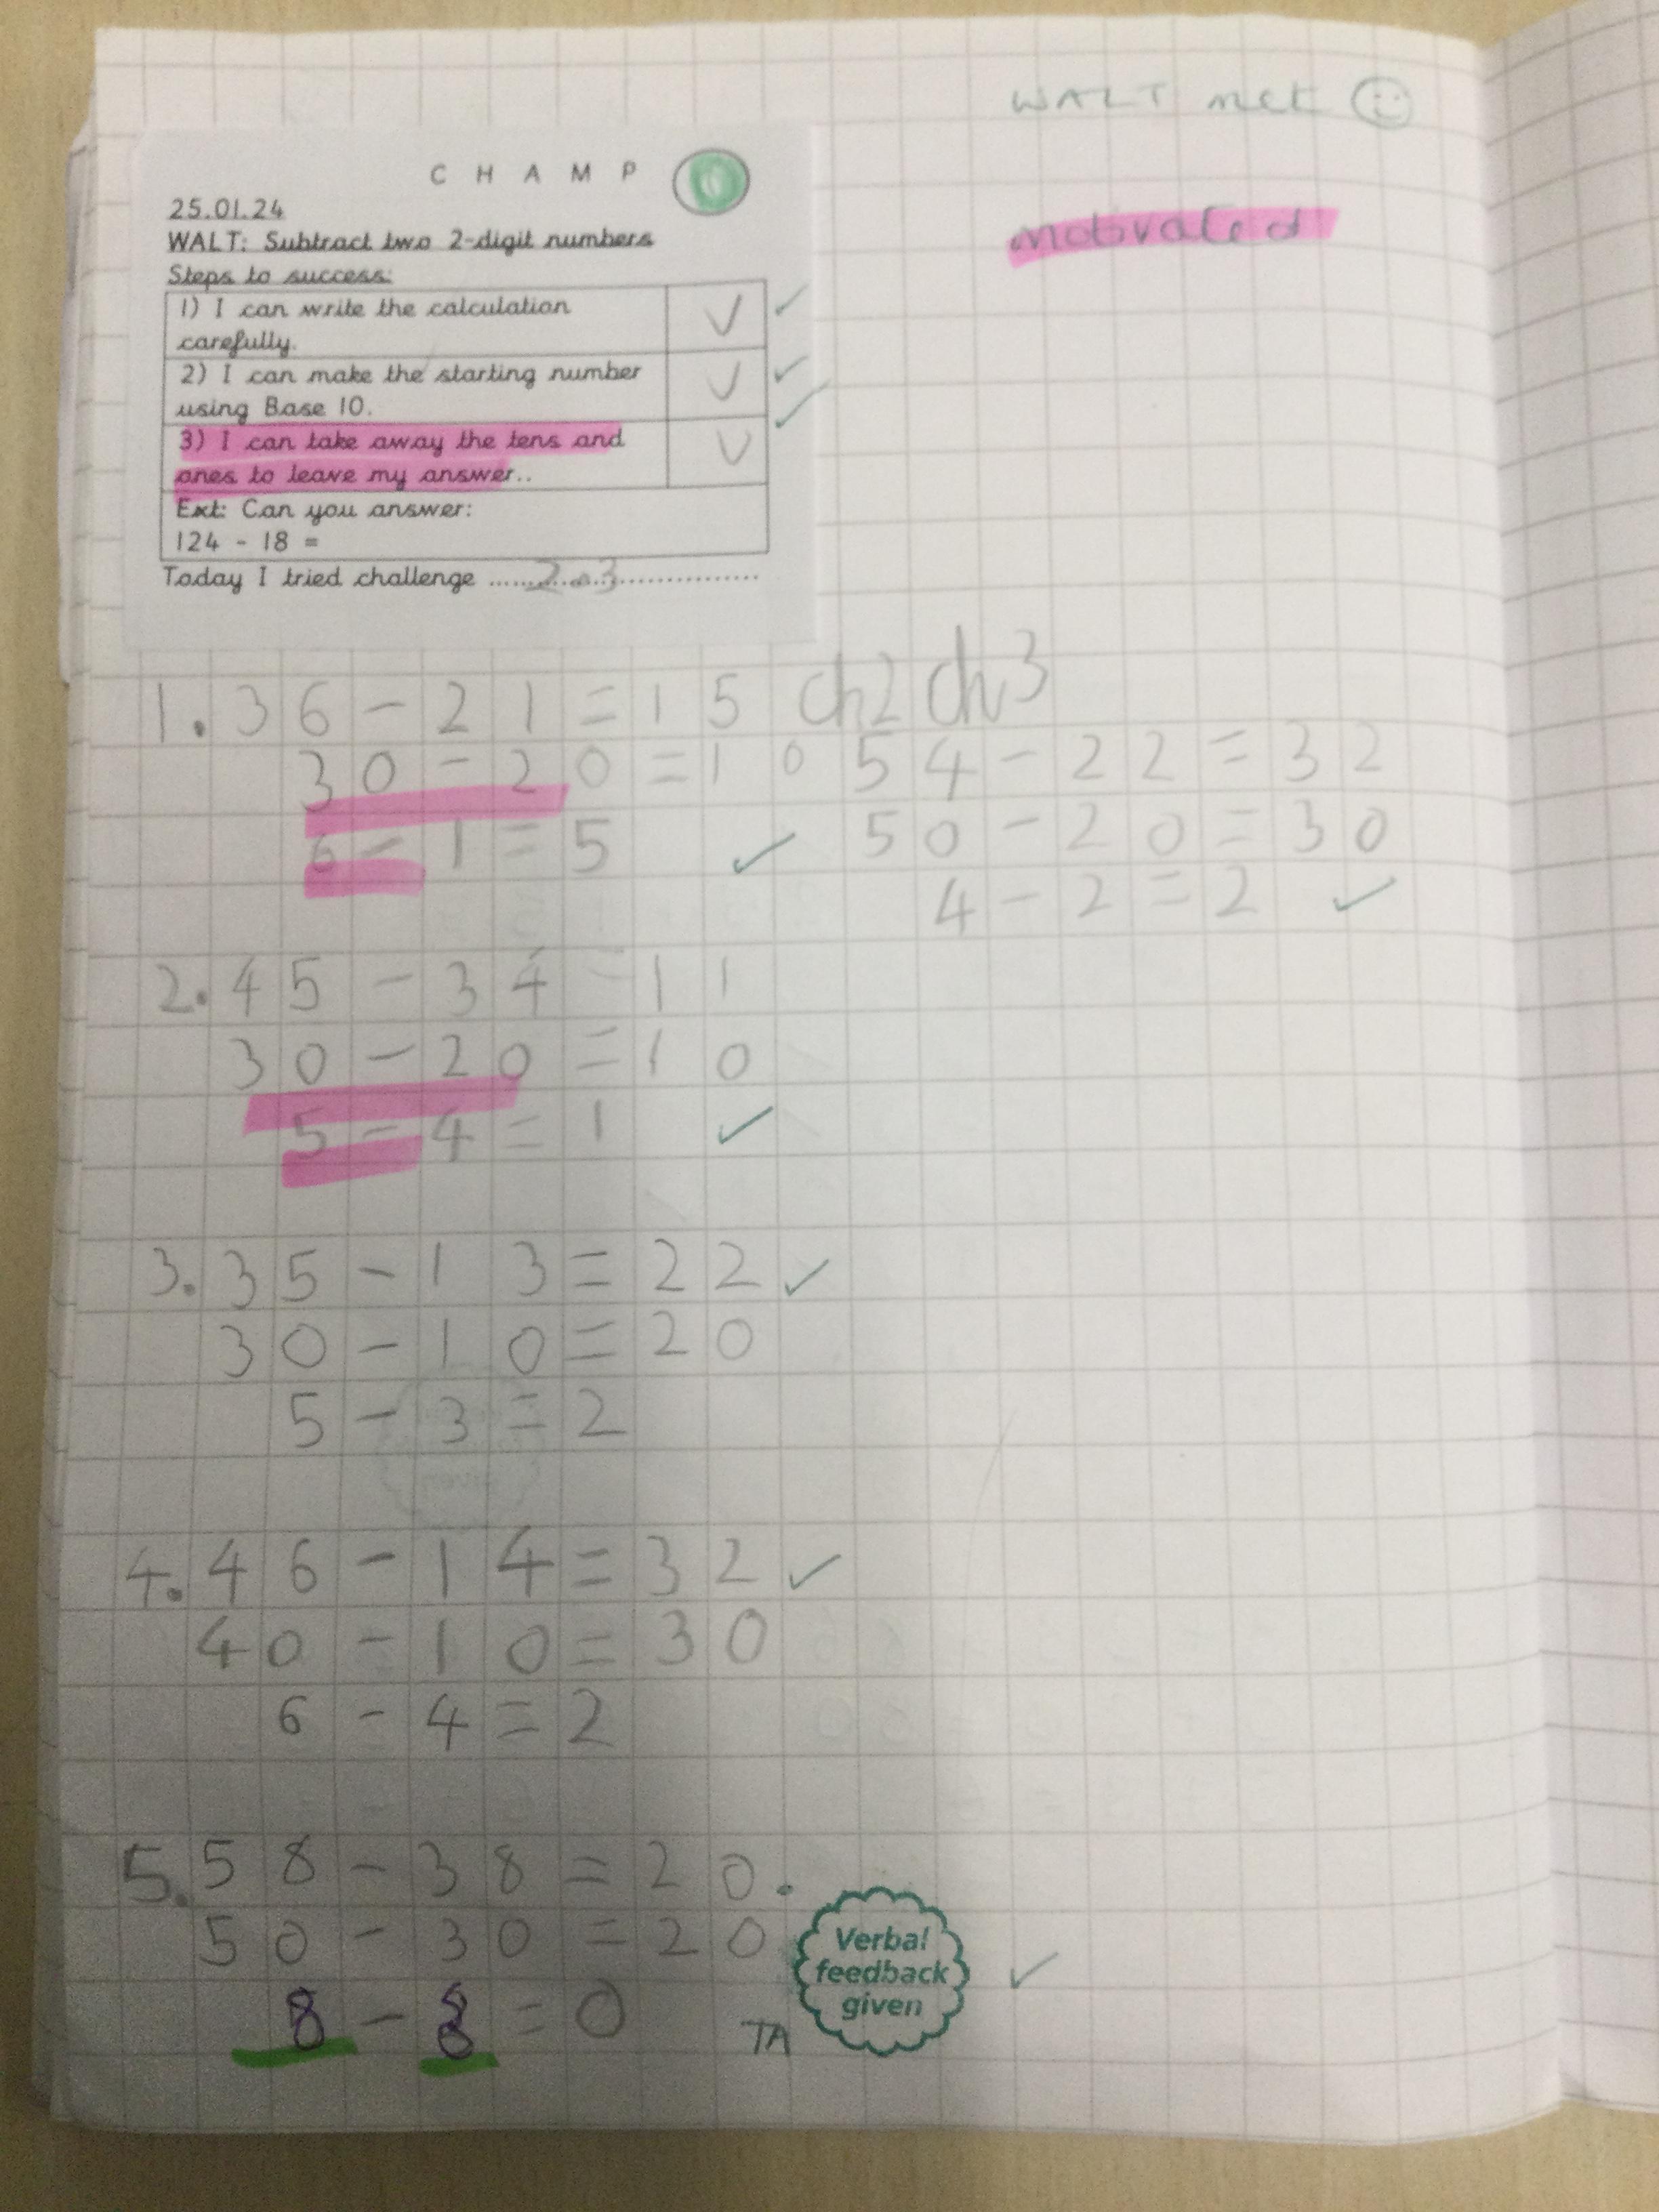 WALT met
C H A M P
25.01.24
WALT: Subtract two 2-digit numbers
Steps to success:
1) I can write the calculation
carefully.
2) I can make the starting number
using Base 10.
3) I can take away the tens and
ones to leave my answer..
Ext: Can you answer:
124 - 18 =
Today I tried challenge ......2.3..............
motivated
1. 36 - 21 = 15 ch2 ch3
30 - 20 = 10
6 - 1 = 5
54 - 22 = 32
50 - 20 = 30
4 - 2 = 2
2. 45 - 34 = 11
30 - 20 = 10
5 - 4 = 1
3. 35 - 13 = 22
30 - 10 = 20
5 - 3 = 2
4. 46 - 14 = 32
40 - 10 = 30
6 - 4 = 2
5. 58 - 38 = 20.
50 - 30 = 20
8 - 8 = 0
TA
Verbal
feedback
given